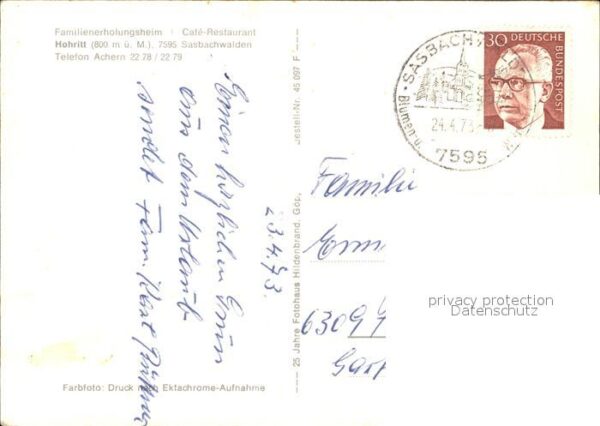 Familienerholungsheim · Café-Restaurant
Hohritt (800 m ü. M.), 7595 Sasbachwalden
Telefon Achern 22 78 / 22 79
Einen herzlichen Gruß
aus dem Urlaub
sendet Fam. Karl
23.4.73.
Bestell-Nr. 45 097 F
25 Jahre Fotohaus Hildenbrand, Göp
Farbfoto: Druck nach Ektachrome-Aufnahme
SASBACHWALD
24.4.73
Blumen-u.
7595
30 DEUTSCHE
BUNDESPOST
Familie
6309
privacy protection
Datenschutz